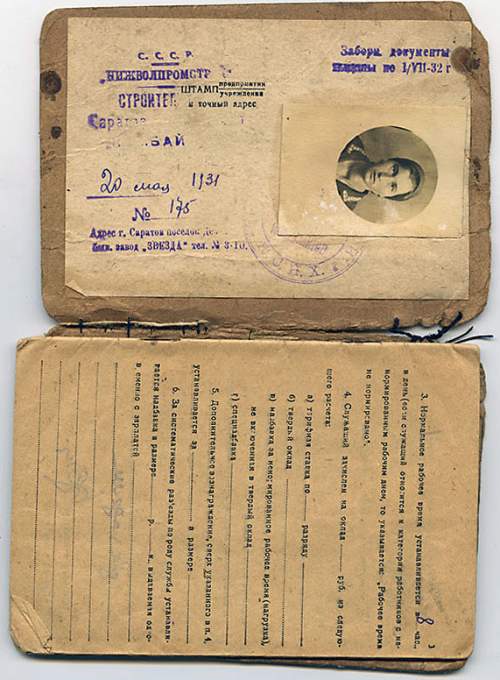 С. С. С. Р.
„НИЖВОЛПРОМСТР
СТРОИТЕЛ
ШТАМП предприятия
учреждения
и точный адрес
Заборн. документы
по 1/VII-32 г
20 мая 1931
№ 175
Адрес г. Саратов поселок
завод „ЗВЕЗДА" тел. № 3-10.
3
3. Нормальное рабочее время устанавливается в 8 час.
в день (если служащий относится к категории работников с не-
нормированным рабочим днем, то указывается: „Рабочее время
не нормировано".
4. Служащий зачислен на оклад руб. из следую-
щего расчета:
а) тарифная ставка по разряду
б) твердый оклад
в) надбавка за ненормированное рабочее время (нагрузка),
не включенная в твердый оклад
г) спецнадбавка
5. Дополнительное вознаграждение, сверх указанного в п. 4,
устанавливается за в размере
6. За систематические раз'езды по роду службы устанавли-
вается надбавка в размере р. к., выдаваемая одно-
временно с зарплатой